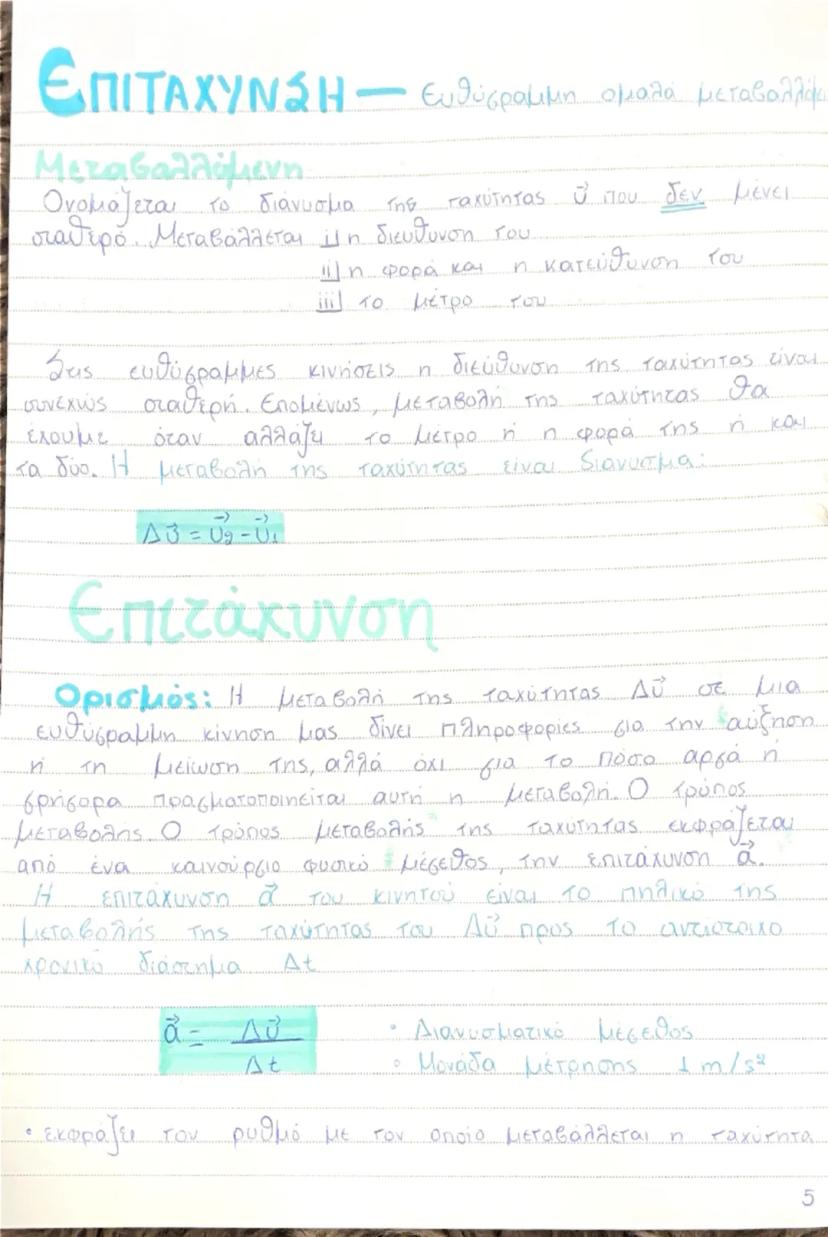 ΕΠΙΤΑΧΥΝΣΗ — Ευθύγραμμη ομαλά
Μεταβαλλόμενη
Ονομάζεται το διάνυσμα της ταχύτητας υ⃗ που δεν μένει
σταθερό. Μεταβάλλεται i) η διεύθυνση του
ii) η φορά και η κατεύθυνση του
iii) το μέτρο του
Στις ευθύγραμμες κινήσεις η διεύθυνση της ταχύτητας είναι
συνεχώς σταθερή. Επομένως, μεταβολή της ταχύτητας θα
έχουμε όταν αλλάζει το μέτρο ή η φορά της ή και
τα δύο. Η μεταβολή της ταχύτητας είναι διάνυσμα:
Δυ⃗ = υ⃗₂ - υ⃗₁
Επιτάχυνση
Ορισμός: Η μεταβολή της ταχύτητας Δυ⃗ σε μια
ευθύγραμμη κίνηση μας δίνει πληροφορίες για την αύξηση
ή τη μείωση της, αλλά όχι για το πόσο αργά ή
γρήγορα πραγματοποιείται αυτή η μεταβολή. Ο τρόπος
μεταβολής. Ο τρόπος μεταβολής της ταχύτητας εκφράζεται
από ένα καινούργιο φυσικό μέγεθος, την επιτάχυνση α⃗.
Η επιτάχυνση α⃗ του κινητού είναι το πηλίκο της
μεταβολής της ταχύτητας του Δυ⃗ προς το αντίστοιχο
χρονικό διάστημα Δt
α⃗ = Δυ⃗ / Δt
• Διανυσματικό μέγεθος
• Μονάδα μέτρησης 1 m/s²
• εκφράζει τον ρυθμό με τον οποίο μεταβάλλεται η ταχύτητα
5